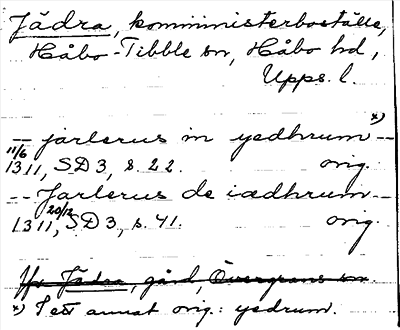 Jädra, komministerboställe,
Håbo-Tibble sn, Håbo hd,
Upps. l.
*)
-- jarlerus in yedhrum --
11/6
1311, SD 3, s. 22. orig.
-- Jarlerus de iædhrum --
20/12
1311, SD 3, s. 41. orig.
Jfr Jädra, gård, Övergrans sn.
*) I ett annat orig.: yedrum.